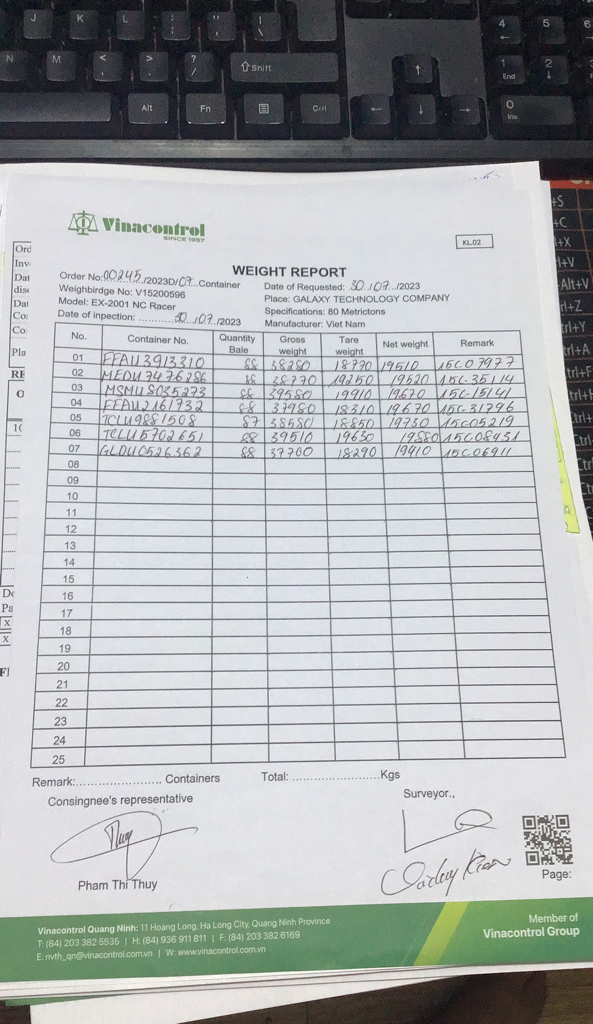 J K L : "
N M < , > . ? / Shift
Alt Fn Ctrl
4 5 6
1 End 2 3
0 Ins
+S
+C
+X
+V
Alt+V
Vinacontrol
SINCE 1957
KL.02
WEIGHT REPORT
Order No:00245/2023D/07 Container
Date of Requested: 30/07/2023
Weighbirdge No: V15200596
Place: GALAXY TECHNOLOGY COMPANY
Model: EX-2001 NC Racer
Specifications: 80 Metrictons
Date of inpection: ............30/07/2023
Manufacturer: Viet Nam
No. Container No. Quantity Bale Gross weight Tare weight Net weight Remark
01 FFAU3913310 88 38280 18770 19510 15C07977
02 MEDU7476286 88 38770 19250 19520 15C-35114
03 MSMU8035273 88 39580 19910 19670 15C-15141
04 FFAU2161732 88 37980 18310 19670 15C-31796
05 TCLU9881508 87 38580 18850 19730 15C05219
06 TCLU5702651 88 39510 19630 19880 15C08431
07 GLDU0526362 88 37700 18290 19410 15C06911
08
09
10
11
12
13
14
15
16
17
18
19
20
21
22
23
24
25
Remark:........................ Containers Total: ........................Kgs
Consingnee's representative
Surveyor.,
Thuy
Pham Thi Thuy
Page:
Vinacontrol Quang Ninh: 11 Hoang Long, Ha Long City, Quang Ninh Province
T: (84) 203 382 5535 | H: (84) 936 911 811 | F: (84) 203 382 6169
E: nvth_qn@vinacontrol.com.vn | W: www.vinacontrol.com.vn
Member of
Vinacontrol Group